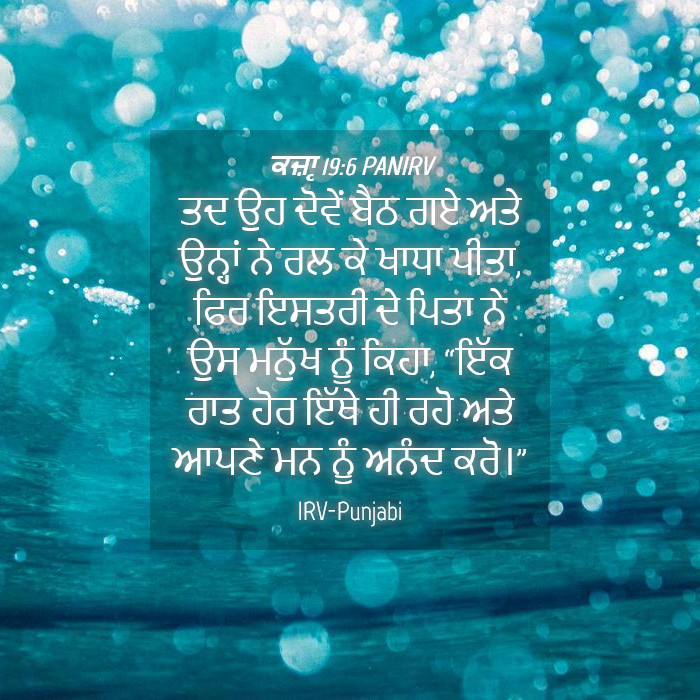 ਕਜ਼ਾ੃ 19:6 PANIRV
ਤਦ ਉਹ ਦੋਵੇਂ ਬੈਠ ਗਏ ਅਤੇ
ਉਨ੍ਹਾਂ ਨੇ ਰਲ ਕੇ ਖਾਧਾ ਪੀਤਾ,
ਫਿਰ ਇਸਤਰੀ ਦੇ ਪਿਤਾ ਨੇ
ਉਸ ਮਨੁੱਖ ਨੂੰ ਕਿਹਾ, “ਇੱਕ
ਰਾਤ ਹੋਰ ਇੱਥੇ ਹੀ ਰਹੋ ਅਤੇ
ਆਪਣੇ ਮਨ ਨੂੰ ਅਨੰਦ ਕਰੋ।”
IRV-Punjabi